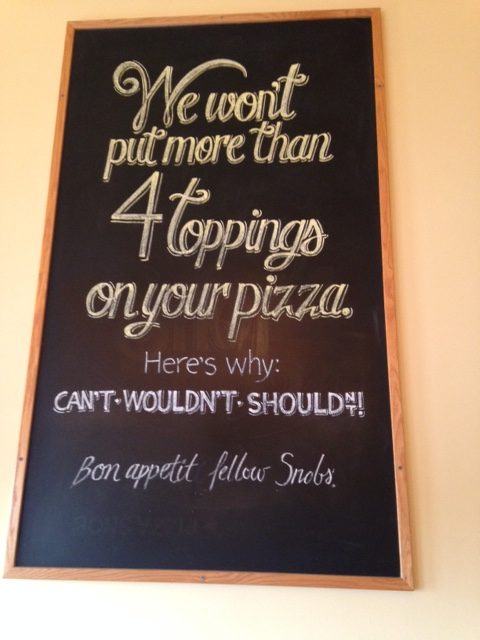 We won't
put more than
4 toppings
on your pizza.
Here's why:
CAN'T · WOULDN'T · SHOULDN'T!
Bon appetit fellow Snobs.